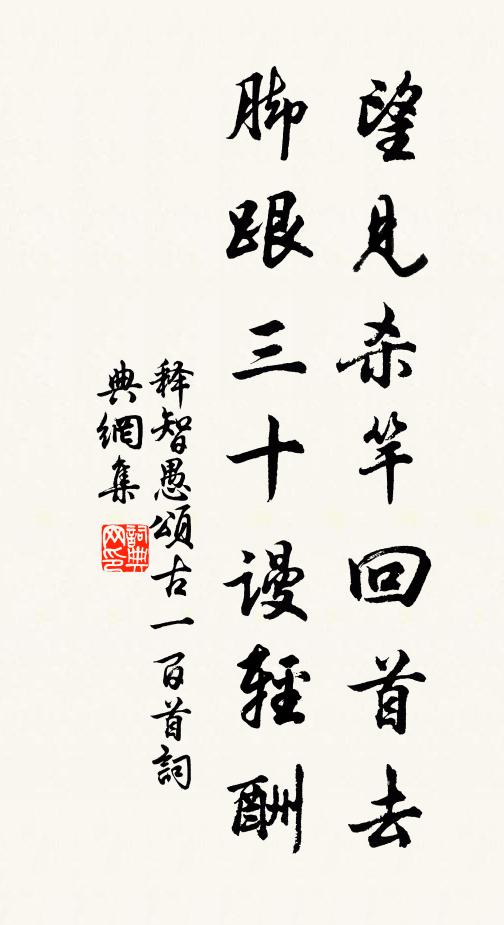 望見杀竿回首去
脚跟三十谩輕酬
释智愚頌古一百首詞
典網集
詞典網印